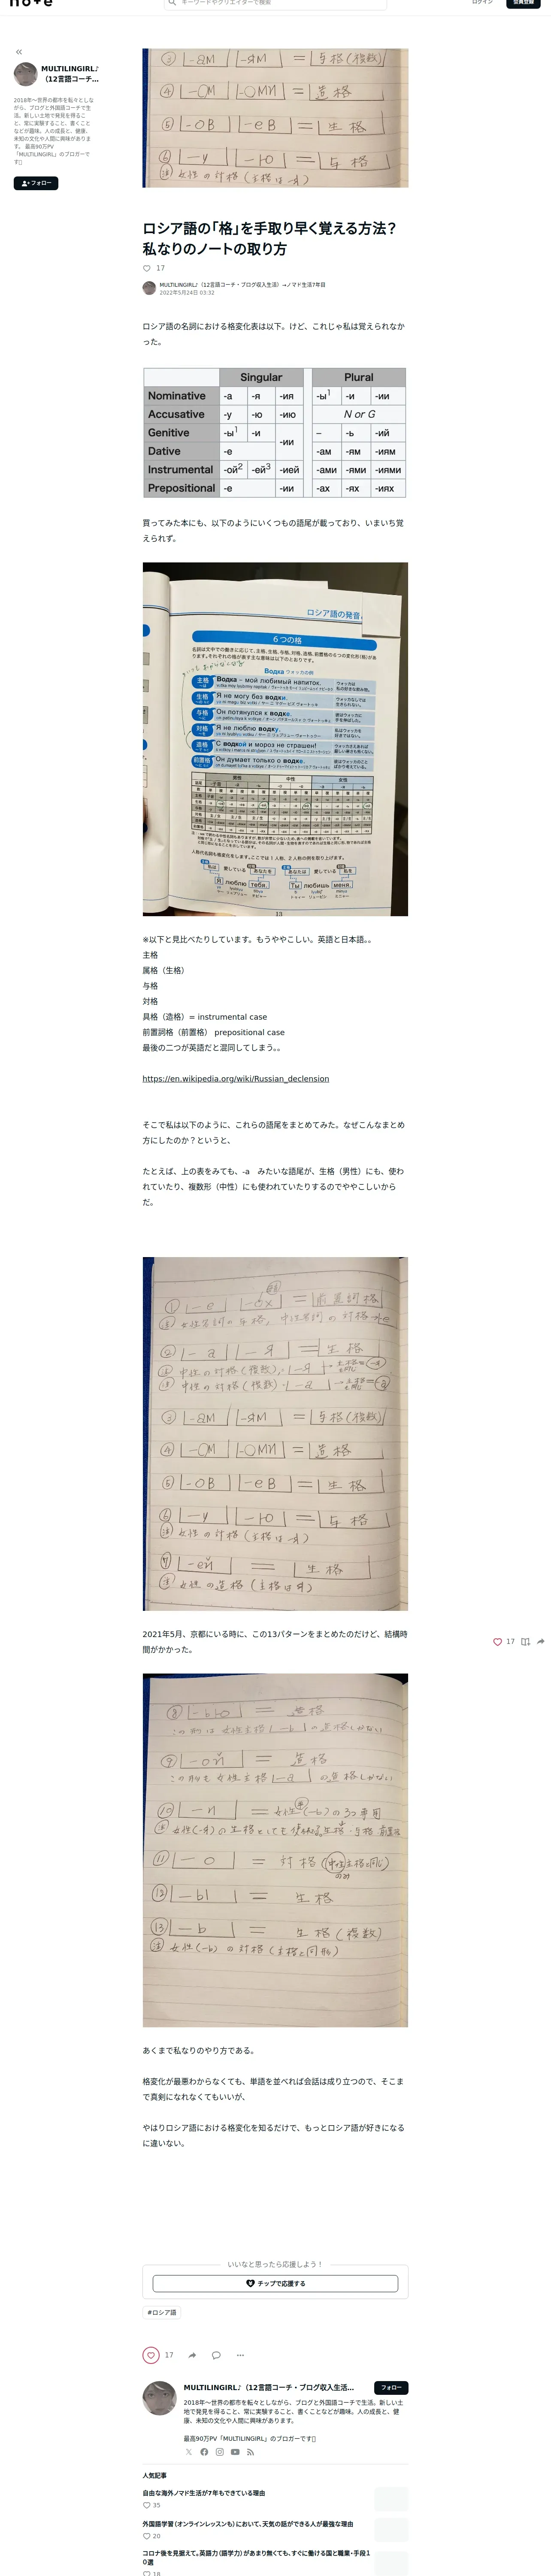 note
キーワードやクリエイターで検索
ログイン
会員登録
MULTILINGIRL♪
（12言語コーチ...
2018年〜世界の都市を転々としな
がら、ブログと外国語コーチで生
活。新しい土地で発見を得るこ
と、常に実験すること、書くこと
などが趣味。人の成長と、健康、
未知の文化や人間に興味がありま
す。 最高90万PV
「MULTILINGIRL」のブロガーで
す
フォロー
③ -ам -ям = 与格(複数)
④ -ом = 造格
⑤ -ов -ев = 生格
⑥ -у -ю = 与格
ロシア語の「格」を手取り早く覚える方法？
私なりのノートの取り方
17
MULTILINGIRL♪（12言語コーチ・ブログ収入生活）→ノマド生活7年目
2022年5月24日 03:32
ロシア語の名詞における格変化表は以下。けど、これじゃ私は覚えられなか
った。
Singular Plural
Nominative -а -я -ия -ы1 -и -ии
Accusative -у -ю -ию N or G
Genitive -ы1 -и -ии – -ь -ий
Dative -е -ам -ям -иям
Instrumental -ой2 -ей3 -ией -ами -ями -иями
Prepositional -е -ии -ах -ях -иях
買ってみた本にも、以下のようにいくつもの語尾が載っており、いまいち覚
えられず。
ロシア語の発音
6つの格
Водка ウォッカの例
主格 Водка – мой любимый напиток.
生格 Я не могу без водки.
与格 Он потянулся к водке.
対格 Я не люблю водку.
造格 С водкой и мороз не страшен!
前置格 Он думает только о водке.
男性 中性 女性
Я люблю тебя.
Ты любишь меня.
13
※以下と見比べたりしています。もうややこしい。英語と日本語。。
主格
属格（生格）
与格
対格
具格（造格）= instrumental case
前置詞格（前置格） prepositional case
最後の二つが英語だと混同してしまう。。
https://en.wikipedia.org/wiki/Russian_declension
そこで私は以下のように、これらの語尾をまとめてみた。なぜこんなまとめ
方にしたのか？というと、
たとえば、上の表をみても、-a　みたいな語尾が、生格（男性）にも、使わ
れていたり、複数形（中性）にも使われていたりするのでややこしいから
だ。
① -е -ах = 前置詞格
② -а -я = 生格
③ -ам -ям = 与格(複数)
④ -ом = 造格
⑤ -ов -ев = 生格
⑥ -у -ю = 与格
⑦ -ей = 生格
2021年5月、京都にいる時に、この13パターンをまとめたのだけど、結構時
間がかかった。
⑧ -ью = 造格
⑨ -ой = 造格
⑩ -и = 女性(-ь)の3つ専用
⑪ -о = 対格(中性主格と同じ)
⑫ -ы = 生格
⑬ -ь = 生格(複数)
注 女性(-ь)の対格(主格と同形)
あくまで私なりのやり方である。
格変化が最悪わからなくても、単語を並べれば会話は成り立つので、そこま
で真剣になれなくてもいいが、
やはりロシア語における格変化を知るだけで、もっとロシア語が好きになる
に違いない。
17
いいなと思ったら応援しよう！
チップで応援する
#ロシア語
17
MULTILINGIRL♪（12言語コーチ・ブログ収入生活...
フォロー
2018年〜世界の都市を転々としながら、ブログと外国語コーチで生活。新しい土
地で発見を得ること、常に実験すること、書くことなどが趣味。人の成長と、健
康、未知の文化や人間に興味があります。
最高90万PV「MULTILINGIRL」のブロガーです
人気記事
自由な海外ノマド生活が7年もできている理由
35
外国語学習（オンラインレッスンも）において、天気の話ができる人が最強な理由
20
コロナ後を見据えて。英語力（語学力）があまり無くても、すぐに働ける国と職業・手段1
0選
18